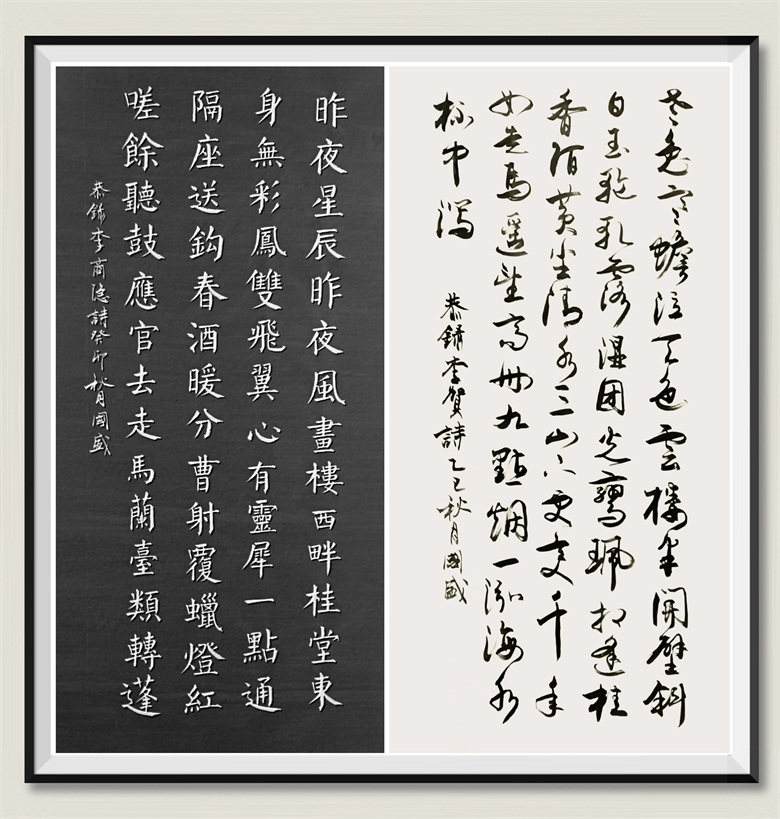 老兔寒蟾泣天色雲樓半開壁斜
白玉輪軋露濕团光鸞珮相逢桂
香陌黃塵清水三山下更变千年
如走馬遥望齊州九點烟一泓海水
杯中瀉
恭錄李賀詩乙巳秋月國盛
昨夜星辰昨夜風畫樓西畔桂堂東
身無彩鳳雙飛翼心有靈犀一點通
隔座送鈎春酒暖分曹射覆蠟燈紅
嗟餘聽鼓應官去走馬蘭臺類轉蓬
恭錄李商隐詩癸卯秋月國盛